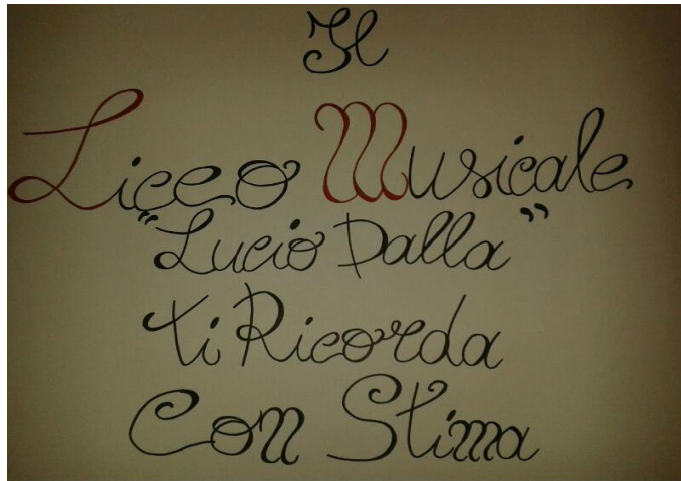 Il
Liceo Musicale
"Lucio Dalla"
ti Ricorda
Con Stima